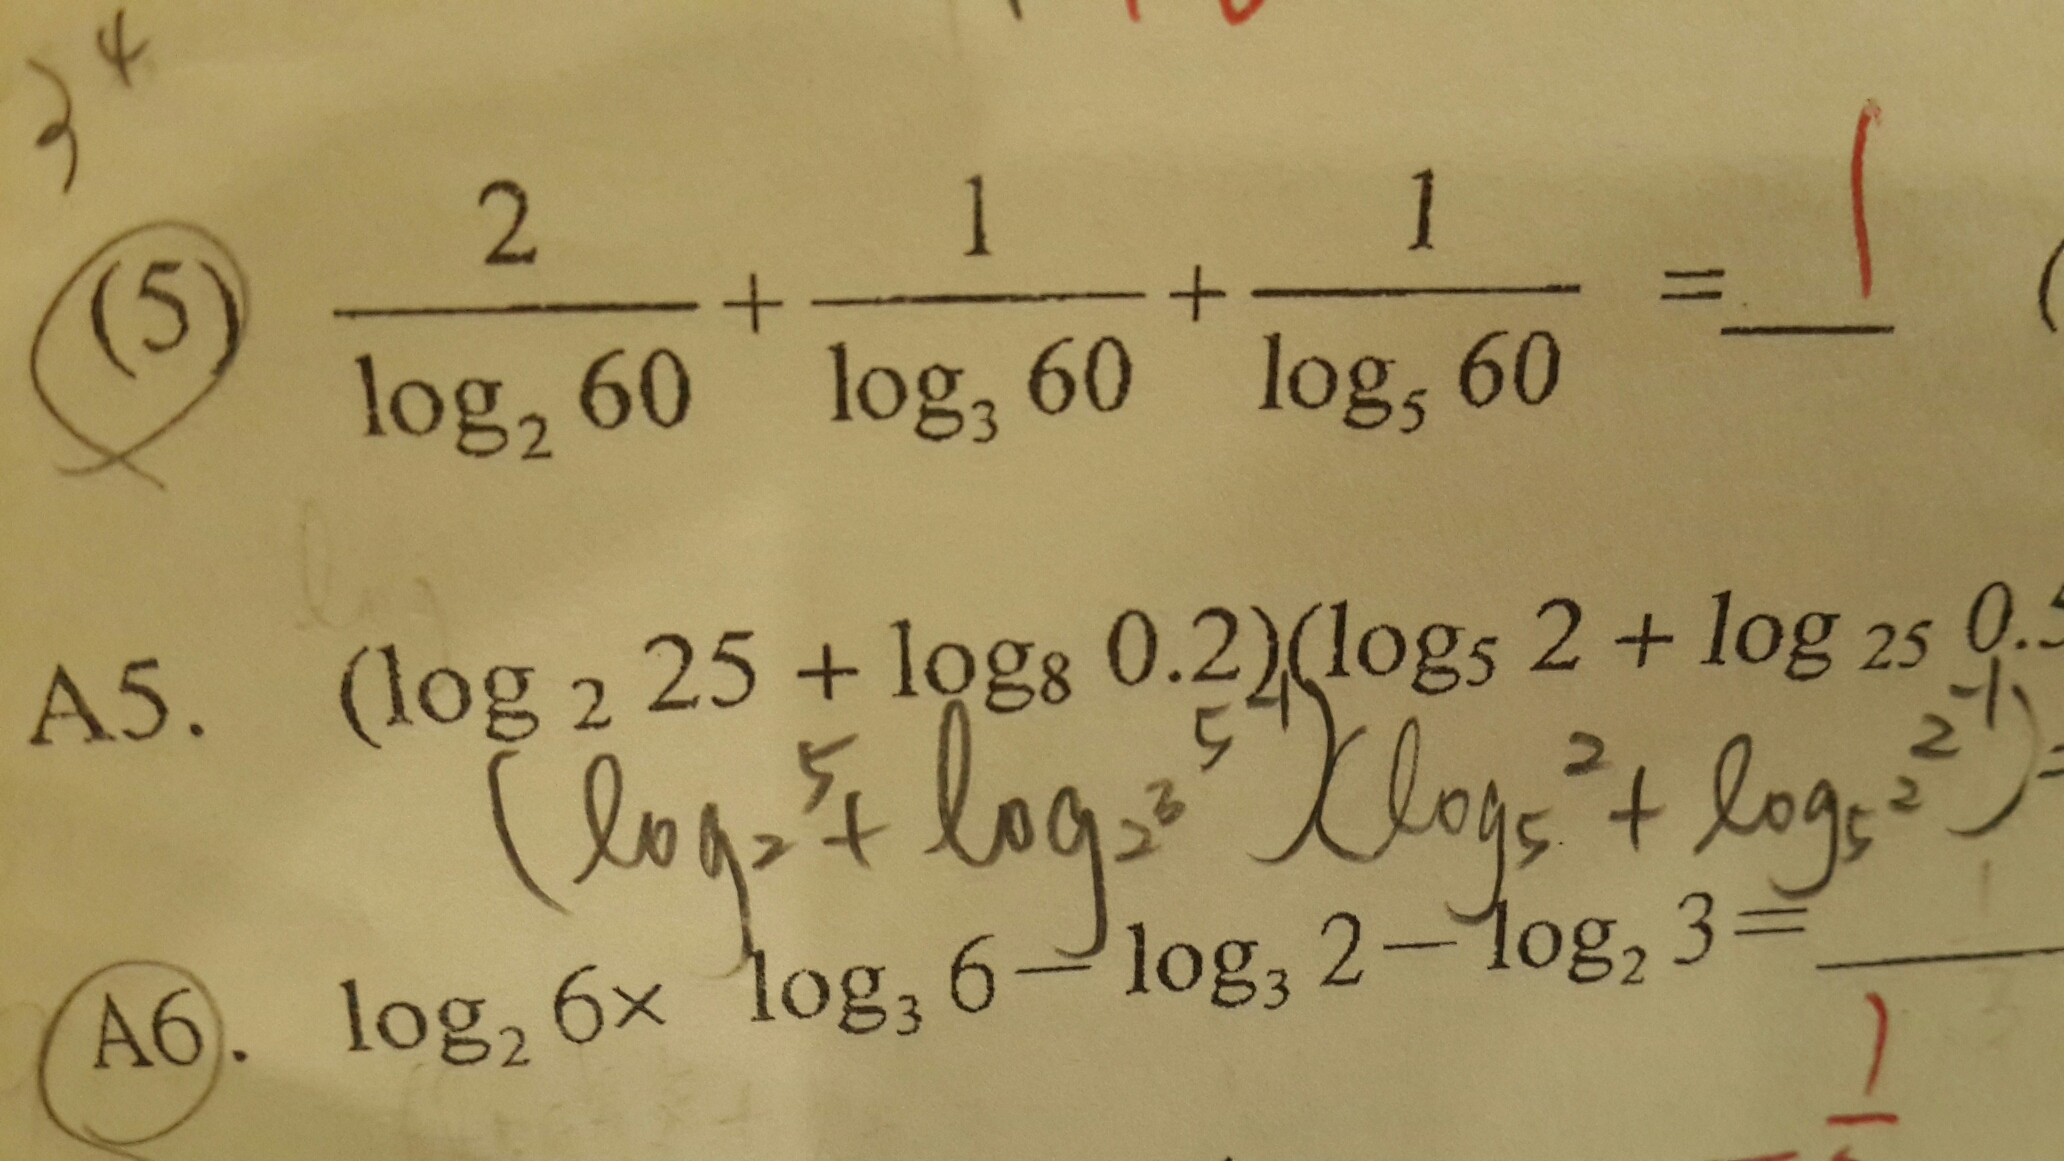 3⁴
(5) 2/log₂ 60 + 1/log₃ 60 + 1/log₅ 60 = 1 (
A5. (log ₂ 25 + log₈ 0.2)(log₅ 2 + log ₂₅ 0.5
(log₂ 5 + log₂³ 5⁻¹)(log₅ 2 + log₅² 2⁻¹) =
A6. log₂ 6× log₃ 6− log₃ 2− log₂ 3=
1